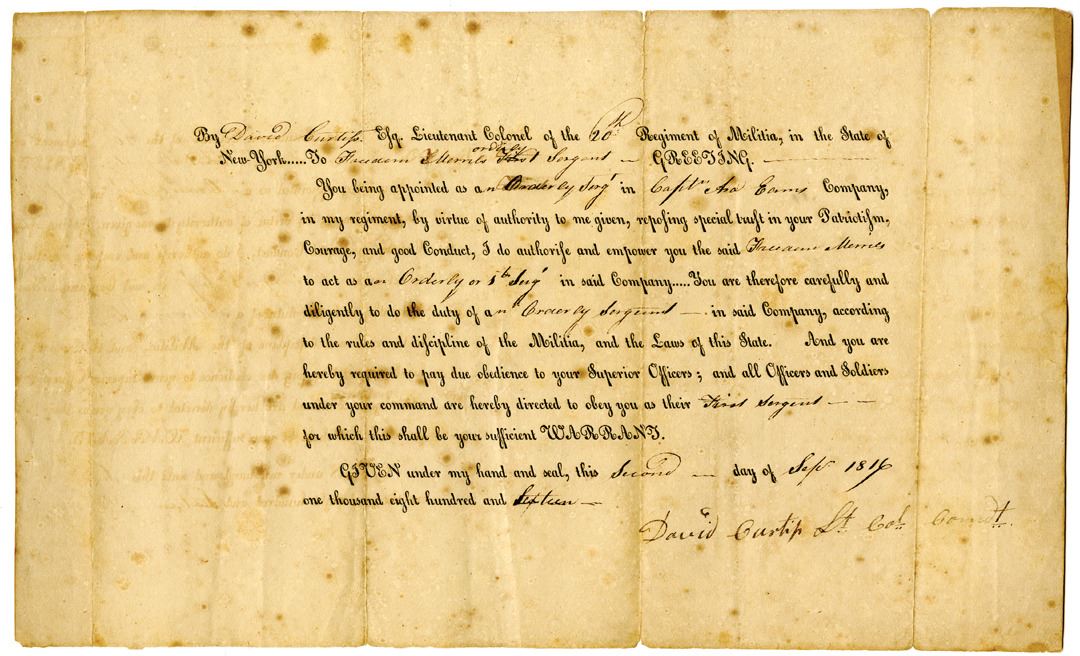 By David Curtiſs Eſq. Lieutenant Colonel of the 20th Regiment of Militia, in the State of
orderly
New-York.....To Freedom Merrils First Sergent — GREETING.
You being appointed as an Orderly Sergt in Captn Asa Eams Company,
in my regiment, by virtue of authority to me given, repoſing special truſt in your Patriotiſm,
Courage, and good Conduct, I do authoriſe and empower you the said Freedom Merrils
to act as an Orderly or 1st Sergt in said Company.....You are therefore carefully and
diligently to do the duty of an Orderly Sergent — in said Company, according
to the rules and diſcipline of the Militia, and the Laws of this State. And you are
hereby required to pay due obedience to your Superior Officers; and all Officers and Soldiers
under your command are hereby directed to obey you as their First Sergent — —
for which this shall be your sufficient WARRANT.
GIVEN under my hand and seal, this Second — day of Sepr 1816
one thousand eight hundred and Sixteen —
David Curtiſs Lt. Col. Comdt.